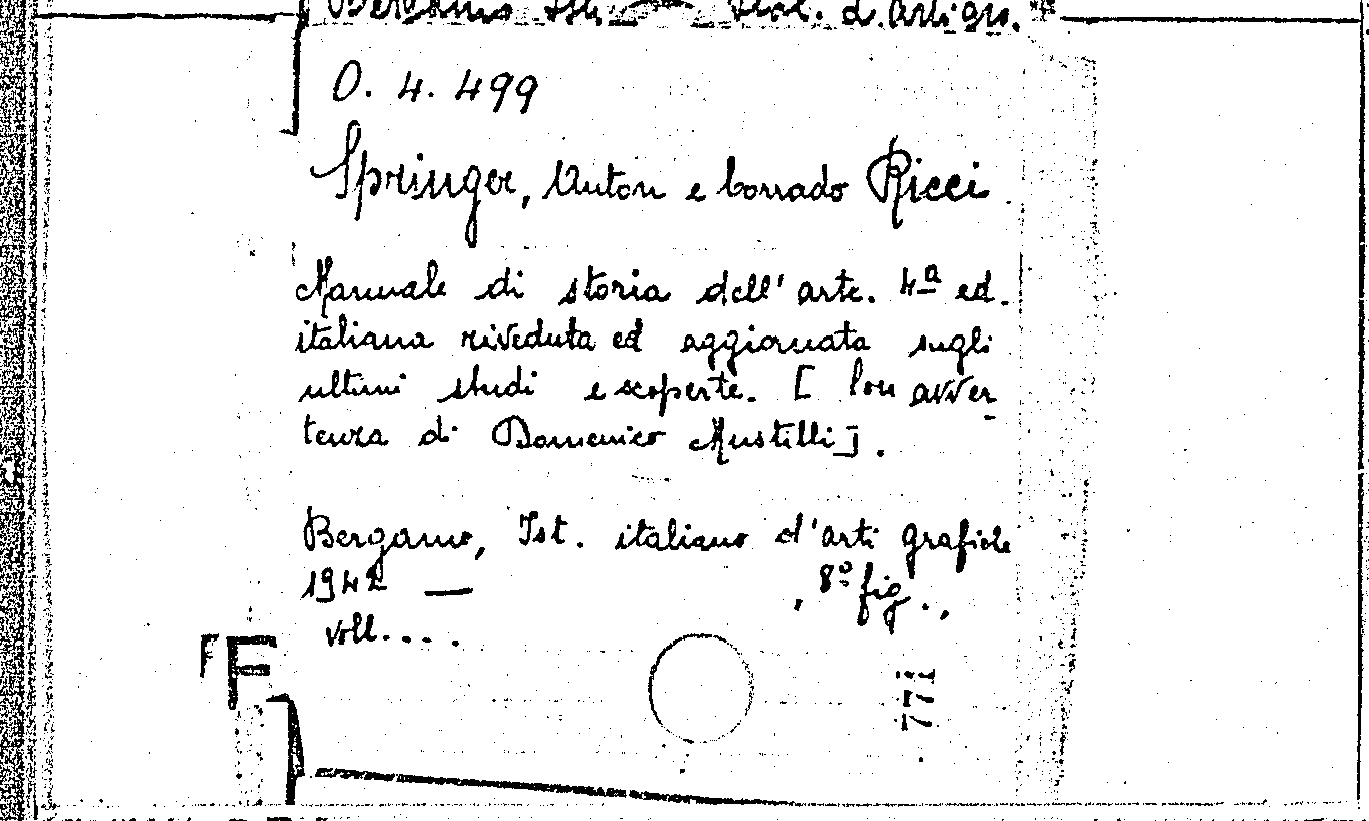 Bergamo Ist. ital. d'arti gr.
O. 4. 499
Springer, Anton e Corrado Ricci
Manuale di storia dell'arte. 4ª ed.
italiana riveduta ed aggiornata sugli
ultimi studi e scoperte. [Con avver-
tenza di Domenico Mustilli].
Bergamo, Ist. italiano d'arti grafiche
1942 — , 8º fig..,
voll....
F
771